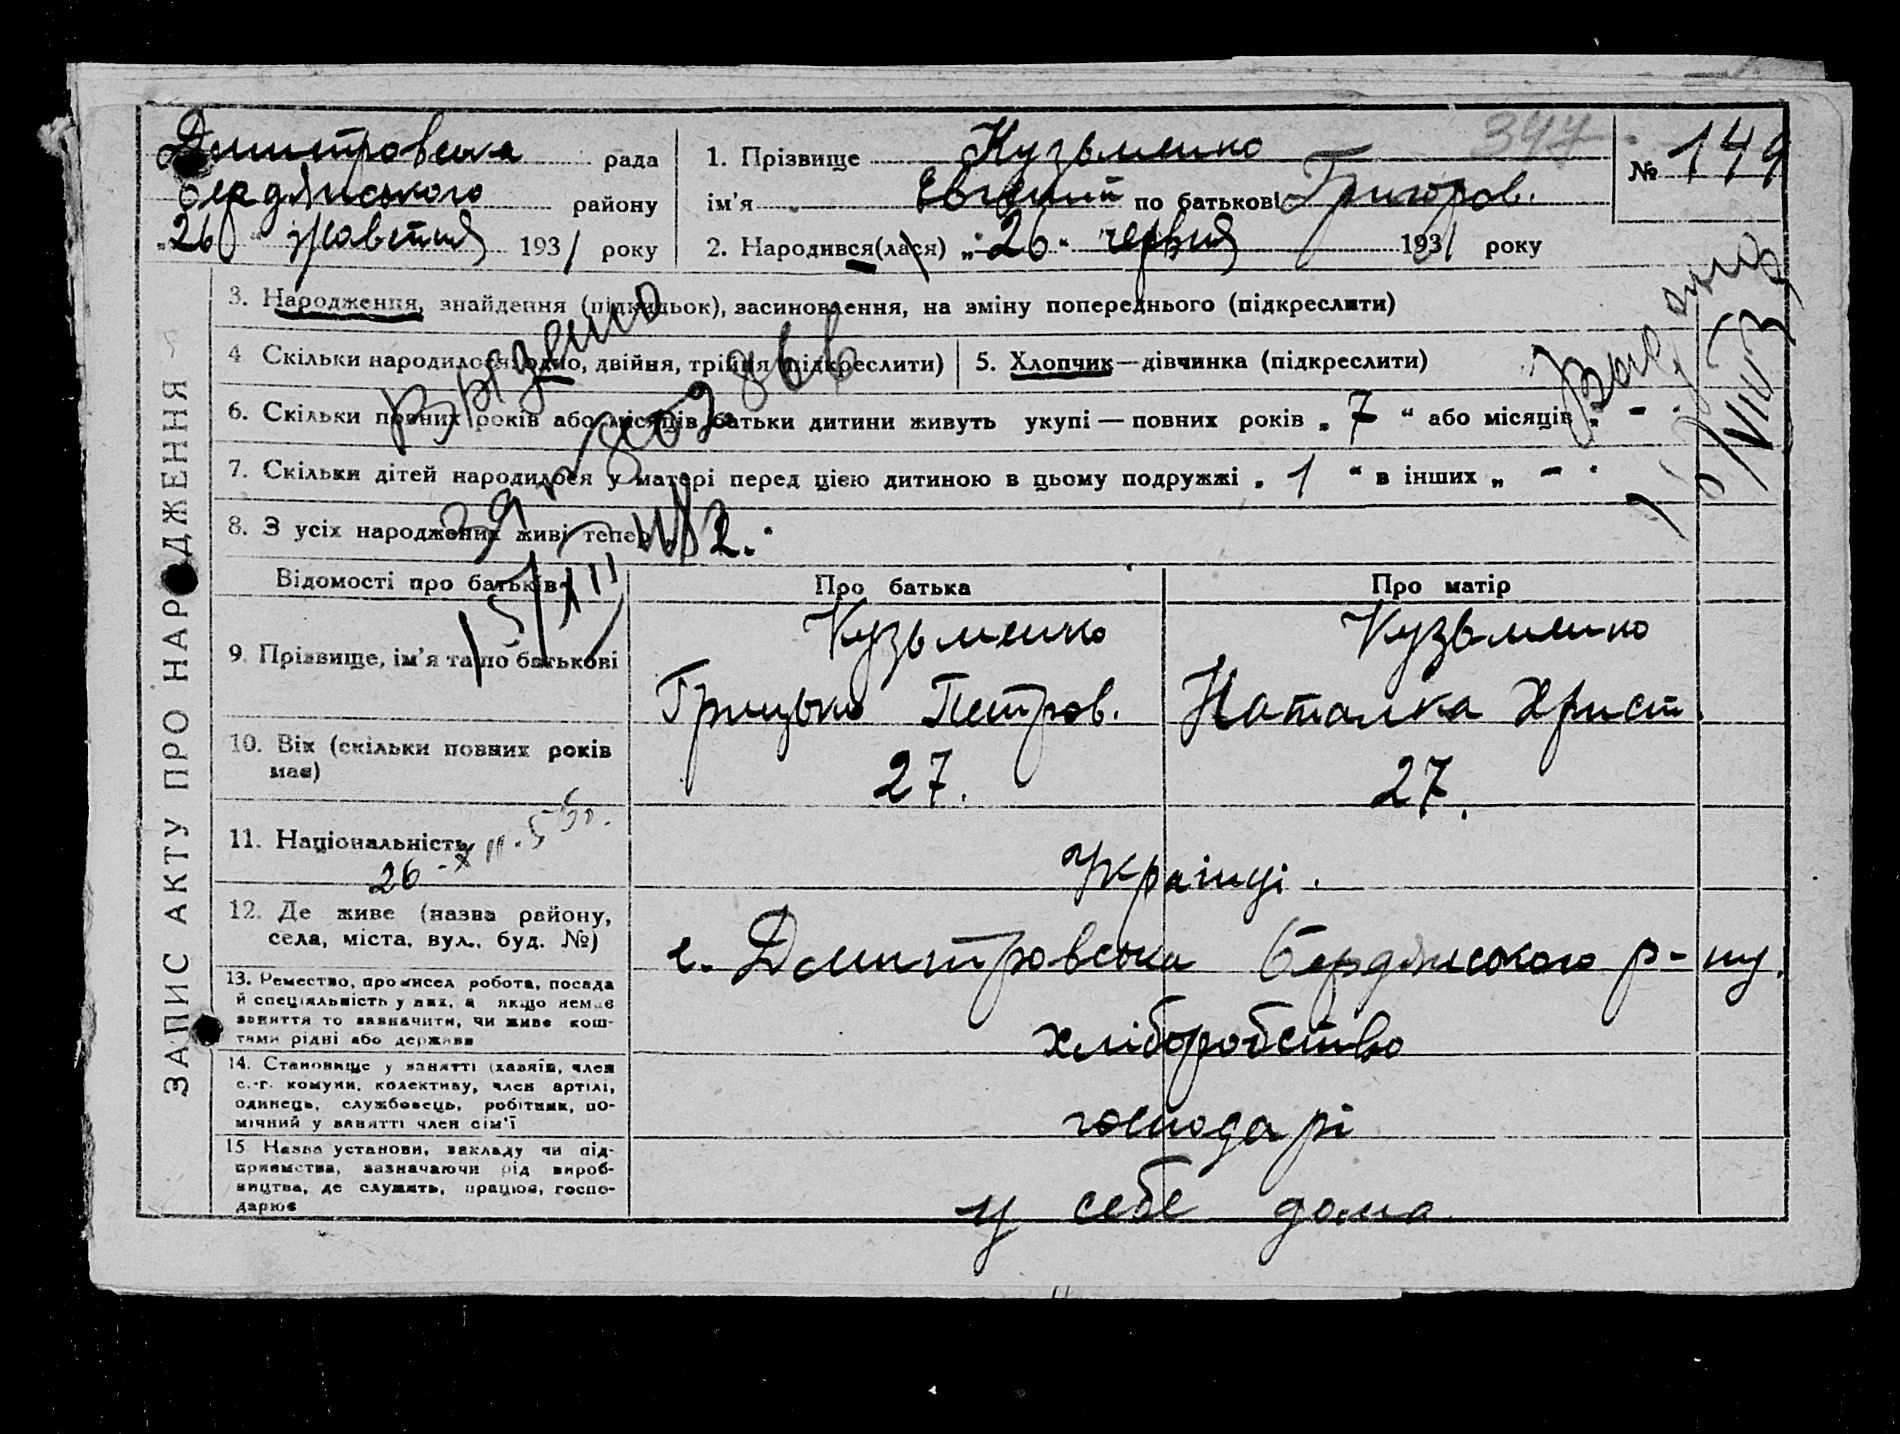 Дмитровська рада
Бердянського району
„26“ жовтня 1931 року
1. Прізвище Кузьменко
ім'я Євгений по батькові Григоров.
2. Народився(лася) „26“ червня 1931 року
347
№ 149
3. Народження, знайдення (підкидьок), засиновлення, на зміну попереднього (підкреслити)
4 Скільки народилося: одно, двійня, трійня (підкреслити)
5. Хлопчик—дівчинка (підкреслити)
6. Скільки повних років або місяців батьки дитини живуть укупі — повних років „ 7 “ або місяців „ - "
7. Скільки дітей народилося у матері перед цією дитиною в цьому подружжі „ 1 “ в інших „ - "
8. З усіх народжених живі тепер 2.
ЗАПИС АКТУ ПРО НАРОДЖЕННЯ
Відомості про батьків Про батька Про матір
9. Прізвище, ім'я та по батькові
Кузьменко
Грицько Петров.
Кузьменко
Наталка Христ.
10. Вік (скільки повних років має)
27. 27.
11. Національність
українці.
12. Де живе (назва району,
села, міста, вул., буд. №)
с. Дмитровська Бердянського р-ну.
13. Ремество, промисел робота, посада
й спеціяльність у них, а якщо немає
заняття то зазначити, чи живе кош-
тами рідні або держави
хліборобство
14. Становище у занятті (хазяїн, член
с.-г. комуни, колективу, член артілі,
одинець, службовець, робітник, по-
мічний у занятті член сім'ї
господарі
15 Назва установи, закладу чи під-
приємства, зазначаючи рід вироб-
ництва, де служить, працює, госпо-
дарює
у себе дома